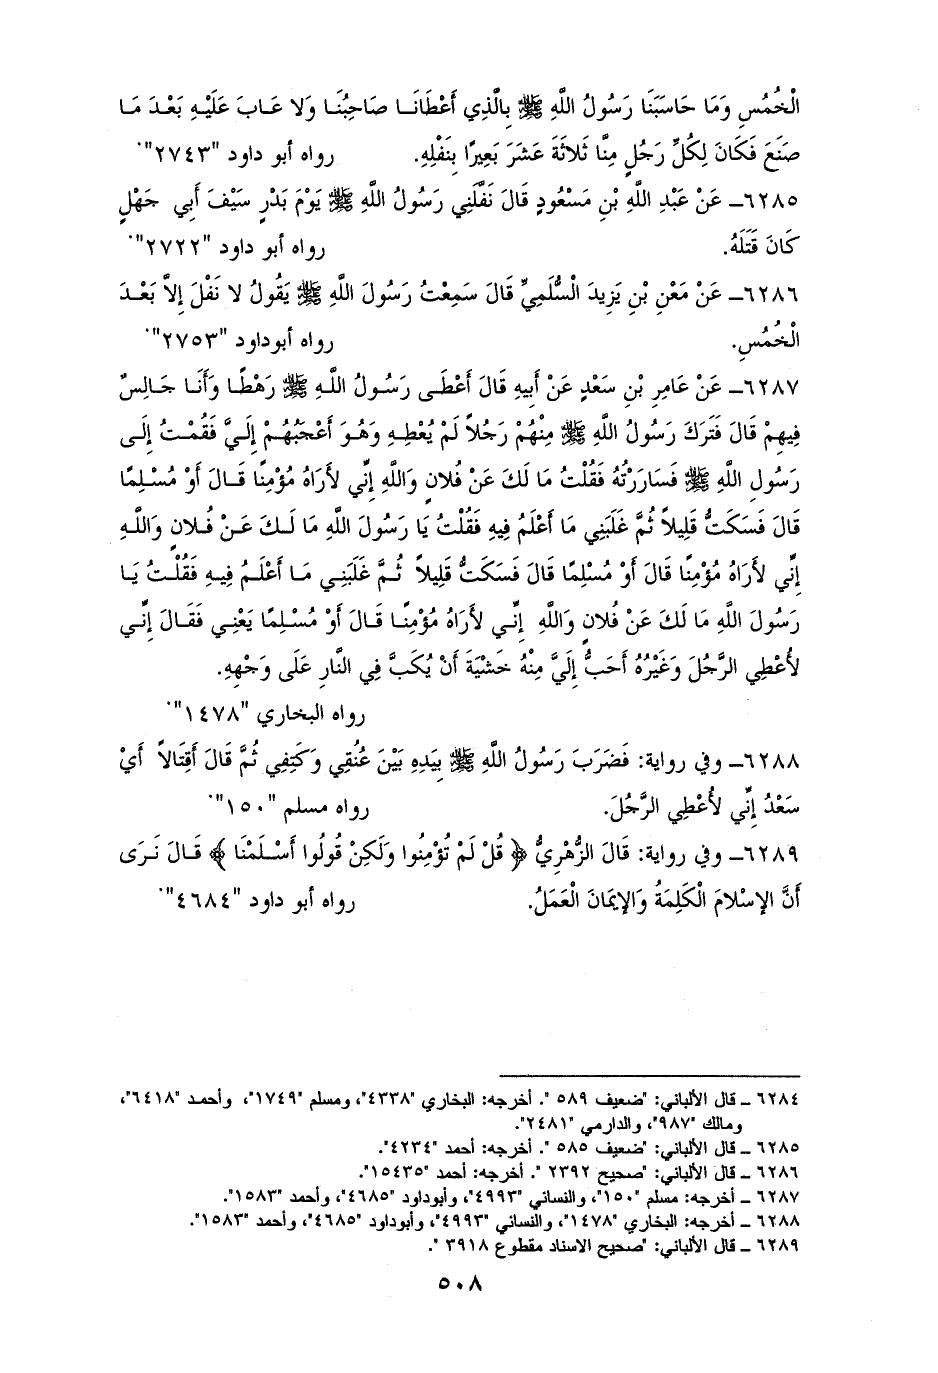 الْخُمُسِ وَمَا حَاسَبَنَا رَسُولُ اللَّهِ ﷺ بِالَّذِي أَعْطَانَا صَاحِبُنَا وَلا عَابَ عَلَيْهِ بَعْدَ مَا
صَنَعَ فَكَانَ لِكُلِّ رَجُلٍ مِنَّا ثَلاثَةَ عَشَرَ بَعِيرًا بِنَفْلِهِ. رواه أبو داود "٢٧٤٣".
٦٢٨٥ـ عَنْ عَبْدِ اللَّهِ بْنِ مَسْعُودٍ قَالَ نَفَّلَنِي رَسُولُ اللَّهِ ﷺ يَوْمَ بَدْرٍ سَيْفَ أَبِي جَهْلٍ
كَانَ قَتَلَهُ. رواه أبو داود "٢٧٢٢".
٦٢٨٦ـ عَنْ مَعْنِ بْنِ يَزِيدَ السُّلَمِيِّ قَالَ سَمِعْتُ رَسُولَ اللَّهِ ﷺ يَقُولُ لا نَفْلَ إِلاَّ بَعْدَ
الْخُمُسِ. رواه أبوداود "٢٧٥٣".
٦٢٨٧ـ عَنْ عَامِرِ بْنِ سَعْدٍ عَنْ أَبِيهِ قَالَ أَعْطَى رَسُولُ اللَّهِ ﷺ رَهْطًا وَأَنَا جَالِسٌ
فِيهِمْ قَالَ فَتَرَكَ رَسُولُ اللَّهِ ﷺ مِنْهُمْ رَجُلاً لَمْ يُعْطِهِ وَهُوَ أَعْجَبُهُمْ إِلَيَّ فَقُمْتُ إِلَى
رَسُولِ اللَّهِ ﷺ فَسَارَرْتُهُ فَقُلْتُ مَا لَكَ عَنْ فُلانٍ وَاللَّهِ إِنِّي لأَرَاهُ مُؤْمِنًا قَالَ أَوْ مُسْلِمًا
قَالَ فَسَكَتُّ قَلِيلاً ثُمَّ غَلَبَنِي مَا أَعْلَمُ فِيهِ فَقُلْتُ يَا رَسُولَ اللَّهِ مَا لَكَ عَنْ فُلانٍ وَاللَّهِ
إِنِّي لأَرَاهُ مُؤْمِنًا قَالَ أَوْ مُسْلِمًا قَالَ فَسَكَتُّ قَلِيلاً ثُمَّ غَلَبَنِي مَا أَعْلَمُ فِيهِ فَقُلْتُ يَا
رَسُولَ اللَّهِ مَا لَكَ عَنْ فُلانٍ وَاللَّهِ إِنِّي لأَرَاهُ مُؤْمِنًا قَالَ أَوْ مُسْلِمًا يَعْنِي فَقَالَ إِنِّي
لأُعْطِي الرَّجُلَ وَغَيْرُهُ أَحَبُّ إِلَيَّ مِنْهُ خَشْيَةَ أَنْ يُكَبَّ فِي النَّارِ عَلَى وَجْهِهِ.
رواه البخاري "١٤٧٨".
٦٢٨٨ـ وفي رواية: فَضَرَبَ رَسُولُ اللَّهِ ﷺ بِيَدِهِ بَيْنَ عُنُقِي وَكَتِفِي ثُمَّ قَالَ أَقِتَالاً أَيْ
سَعْدُ إِنِّي لأُعْطِي الرَّجُلَ. رواه مسلم "١٥٠".
٦٢٨٩ـ وفي رواية: قَالَ الزُّهْرِيُّ ﴿ قُلْ لَمْ تُؤْمِنُوا وَلَكِنْ قُولُوا أَسْلَمْنَا ﴾ قَالَ نَرَى
أَنَّ الإِسْلامَ الْكَلِمَةُ وَالإِيمَانَ الْعَمَلُ. رواه أبو داود "٤٦٨٤".
٦٢٨٤ ـ قال الألباني: "ضعيف ٥٨٩ ". أخرجه: البخاري "٤٣٣٨"، ومسلم "١٧٤٩"، وأحمد "٦٤١٨"،
ومالك "٩٨٧"، والدارمي "٢٤٨١".
٦٢٨٥ ـ قال الألباني: "ضعيف ٥٨٥ ". أخرجه: أحمد "٤٢٣٤".
٦٢٨٦ ـ قال الألباني: "صحيح ٢٣٩٢ ". أخرجه: أحمد "١٥٤٣٥".
٦٢٨٧ ـ أخرجه: مسلم "١٥٠"، والنسائي "٤٩٩٣"، وأبوداود "٤٦٨٥"، وأحمد "١٥٨٣".
٦٢٨٨ ـ أخرجه: البخاري "١٤٧٨"، والنسائي "٤٩٩٣"، وأبوداود "٤٦٨٥"، وأحمد "١٥٨٣".
٦٢٨٩ ـ قال الألباني: "صحيح الاسناد مقطوع ٣٩١٨ ".
٥٠٨